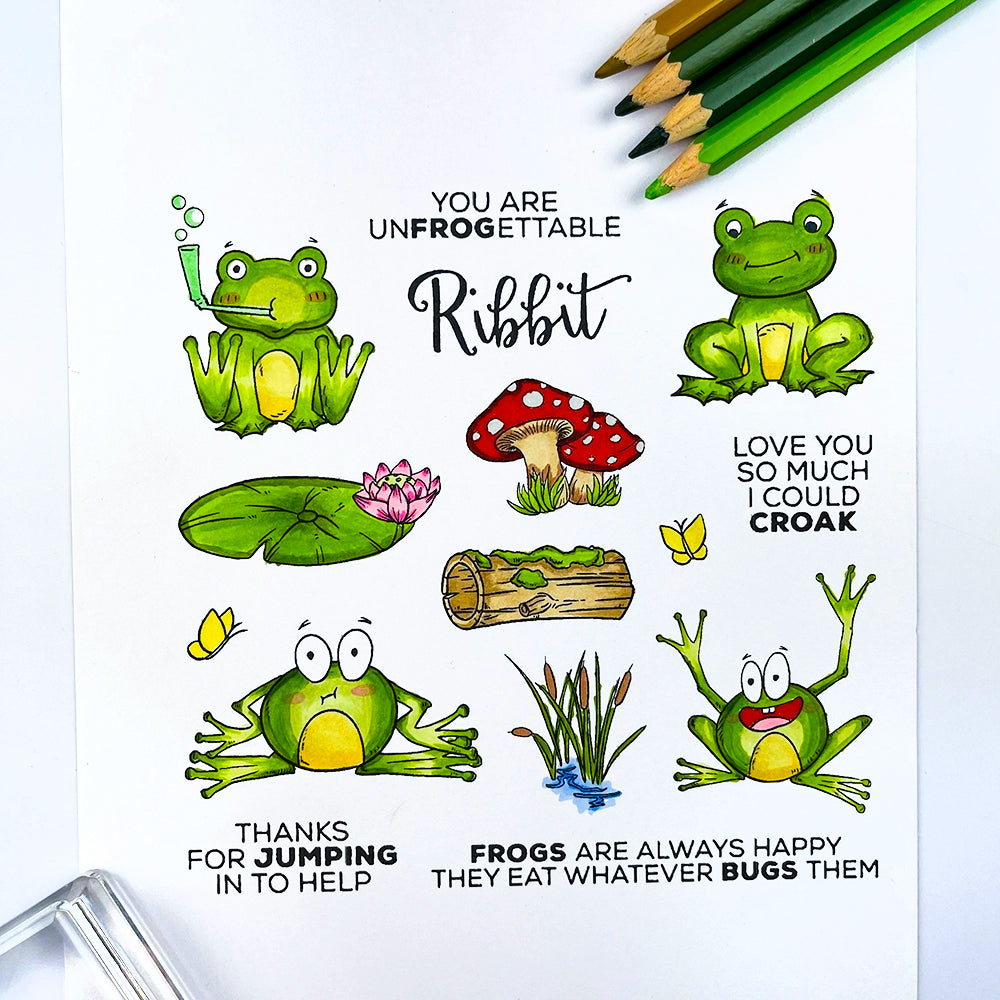 YOU ARE
UNFROGETTABLE
Ribbit
LOVE YOU
SO MUCH
I COULD
CROAK
THANKS
FOR JUMPING
IN TO HELP
FROGS ARE ALWAYS HAPPY
THEY EAT WHATEVER BUGS THEM